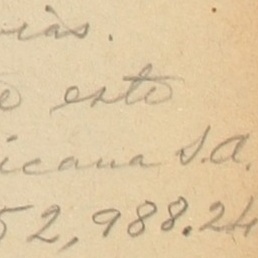 vias.
e este
icana S.A.
52,988.24